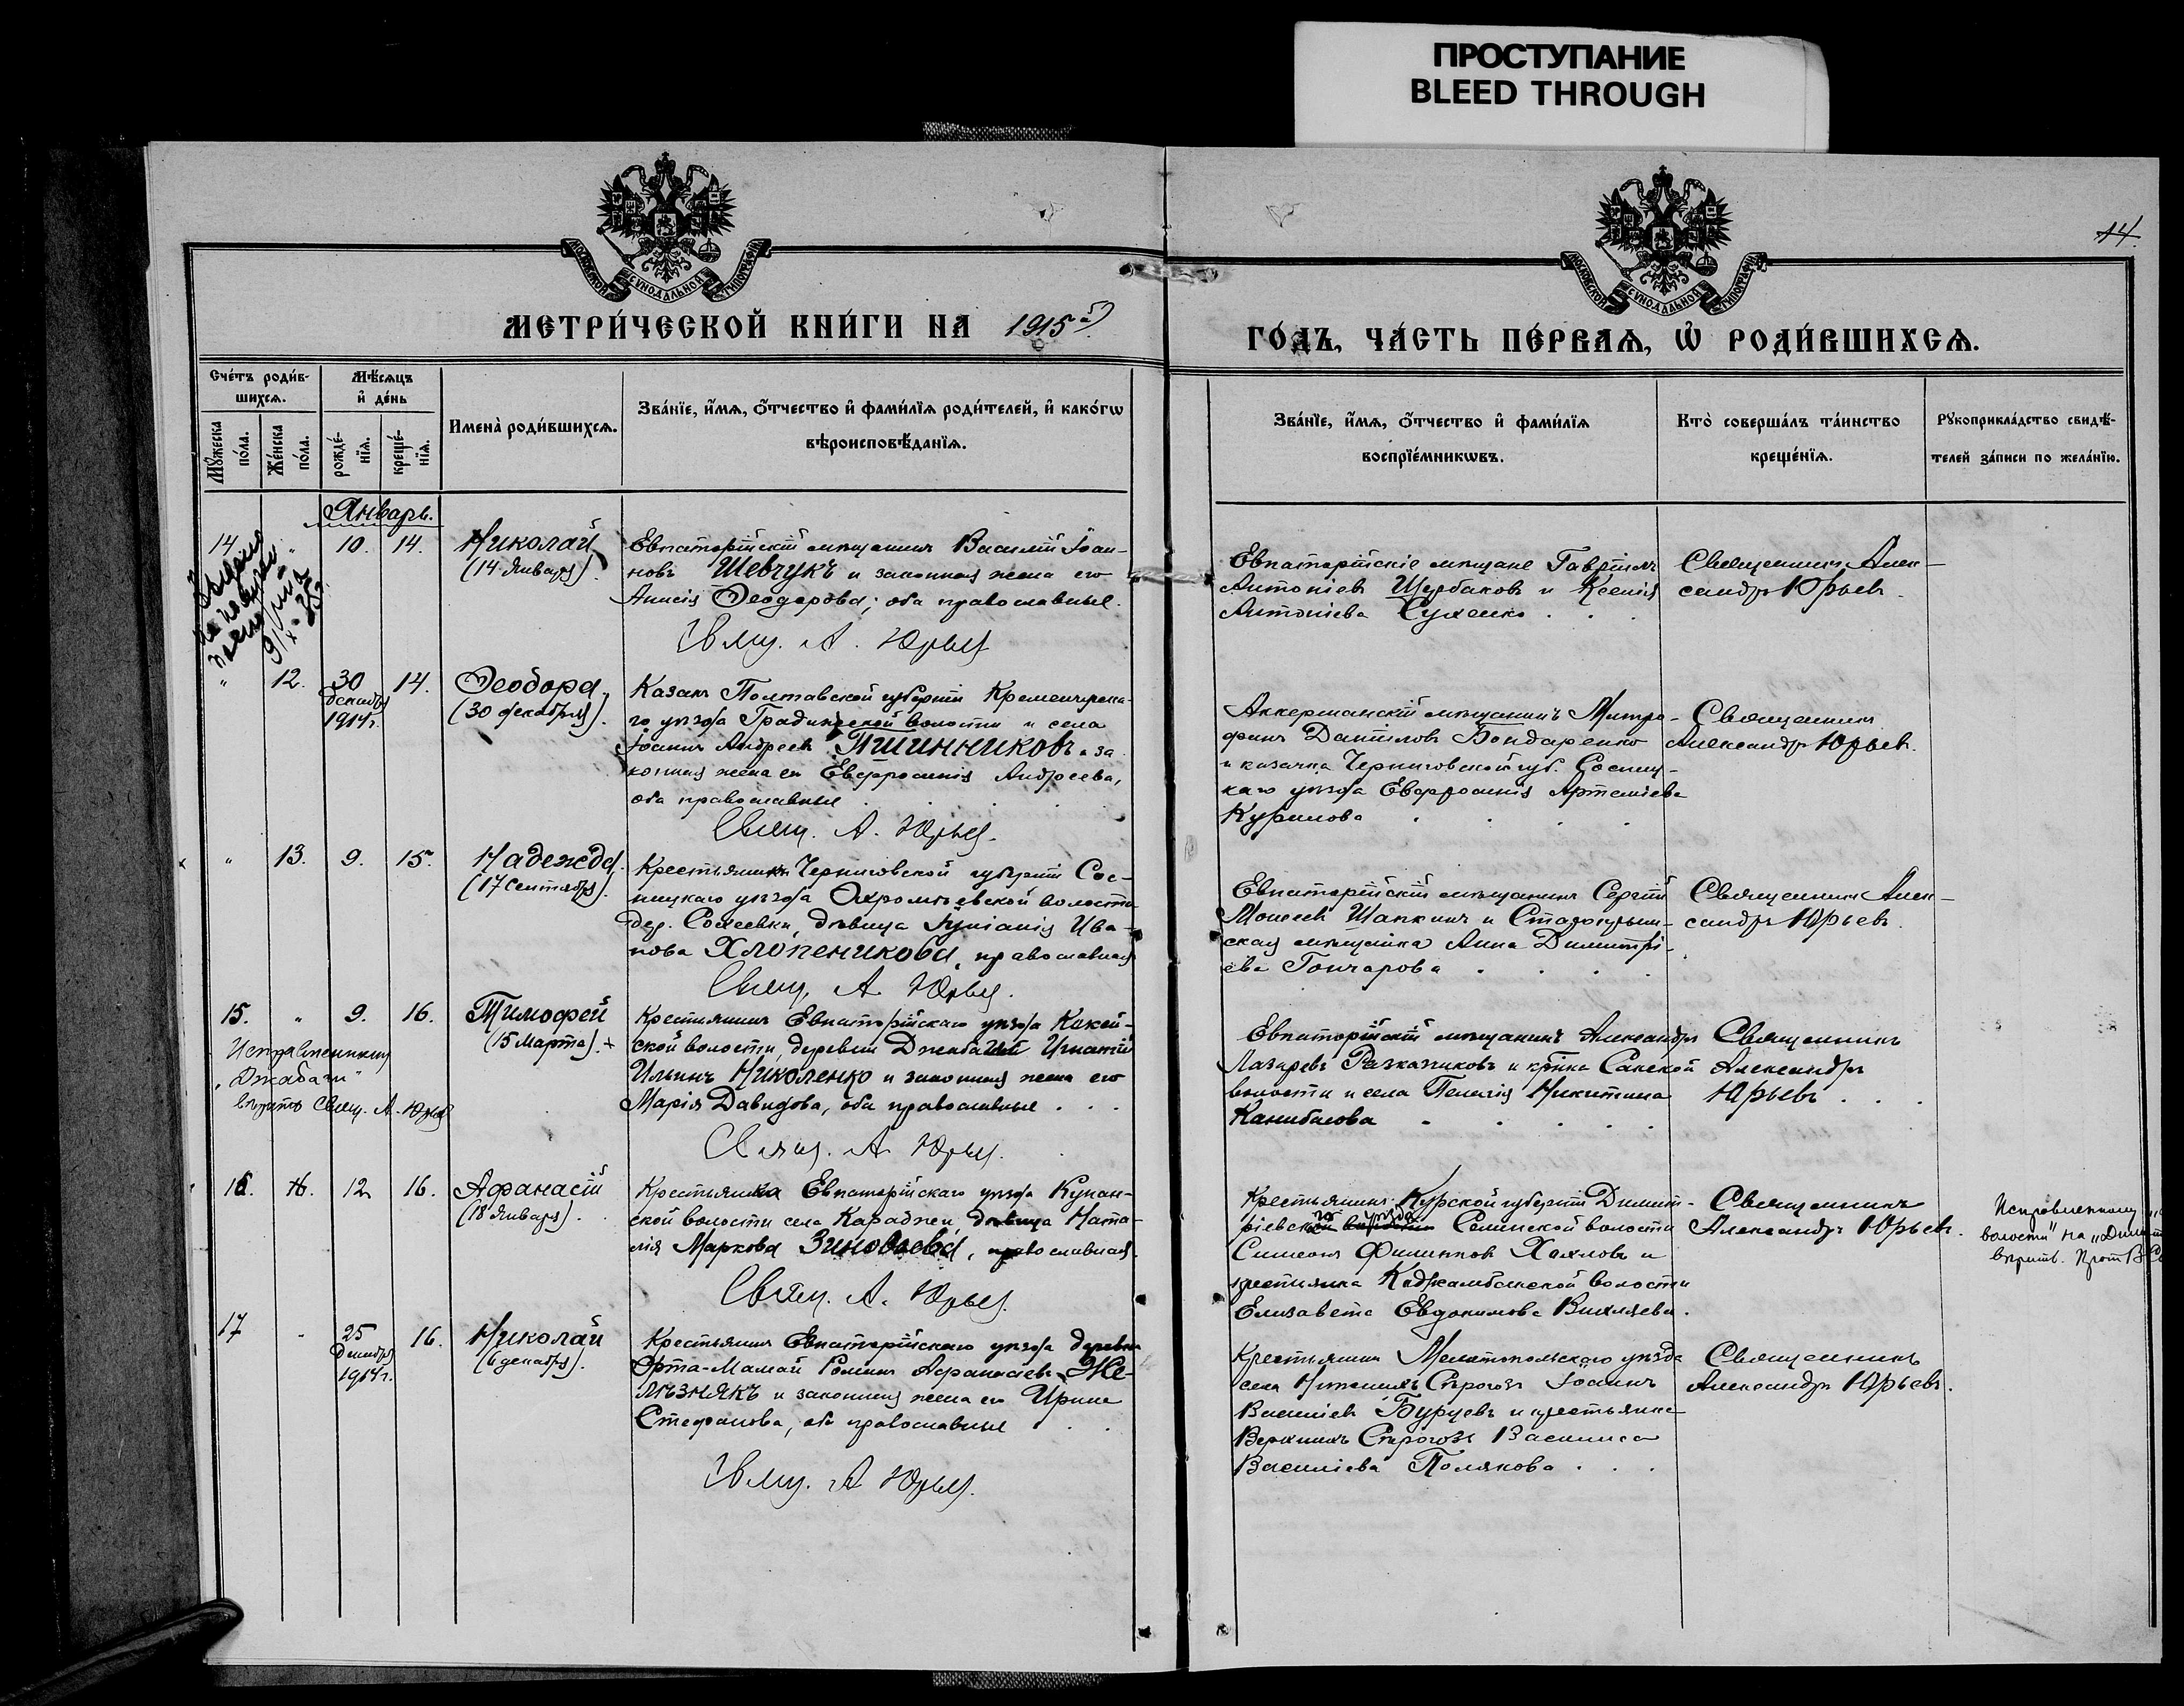 ПРОСТУПАНИЕ
BLEED THROUGH
14.
МОСКОВСКОЙ СѴНОДАЛЬНОЙ ТИПОГРАФІИ
МОСКОВСКОЙ СѴНОДАЛЬНОЙ ТИПОГРАФІИ
МЕТРИ́ЧЕСКОЙ КНИ́ГИ НА 1915 й
ГО́ДЪ, ЧА́СТЬ ПЕ́РВАѦ, Ѡ҆ РОДИ́ВШИХСѦ.
Сче́тъ роди́в-
шихсѧ.
Мꙋ́жеска по́ла.
Же́нска по́ла.
Мѣ́сѧцъ
и҆ де́нь
рожде́-
нїѧ.
креще́-
нїѧ.
Имена̀ роди́вшихсѧ.
Зва́нїе, и҆́мѧ, ѻ҆́тчество и҆ фами́лїѧ роди́телей, и҆ како́гѡ
вѣроисповѣ́данїѧ.
Зва́нїе, и҆́мѧ, ѻ҆́тчество и҆ фами́лїѧ
воспрїе́мникѡвъ.
Кто̀ соверша́лъ та́инство
креще́нїѧ.
Рꙋкоприкла́дство свидѣ́-
телей за́писи по жела́нїю.
Январь.
14 " 10. 14. Николай
(14 Января).
Евпаторійскій мѣщанинъ Василій Іоан-
новъ Шевчукъ и законная жена его
Анисія Ѳеодорова; оба православные.
Свящ. А. Юрьев
Евпаторійскіе мѣщане Гавріилъ
Антоніевъ Щербаковъ и Ксенія
Антоніева Сухенко . . .
Священникъ Алек-
сандръ Юрьевъ.
" 12. 30 декабря 1914 г. 14. Ѳеодора
(30 декабря).
Казакъ Полтавской губерніи Кременчугска-
го уѣзда Градижской волости и села
Іоаннъ Андреевъ Пшинниковъ и за
конная жена его Евфросинія Андреева,
оба православные
Свящ. А. Юрьев.
Аккерманскій мѣщанинъ Митро-
фанъ Даніиловъ Бондаренко
и казачка Черниговской губ. Сосниц-
каго уѣзда Евфросинія Артеміева
Курилова . . . .
Священникъ
Александръ Юрьевъ.
" 13. 9. 15. Надежда
(17 Сентября).
Крестьянка Черниговской губерніи Сос-
ницкаго уѣзда Охромѣевской волости
дер. дѣвица Іуліанія Ива-
нова Хлопеникова, православная
Свящ. А. Юрьев.
Евпаторійскій мѣщанинъ Сергій
Моисеевъ Шапкинъ и Старокрым-
ская мѣщанка Анна Димитрі-
ева Гончарова . . . .
Священникъ Алек-
сандръ Юрьевъ.
15. " 9. 16. Тимофей
(15 Марта). +
Исправленному
"Джабачи"
вѣрить Свящ. А. Юрьев
Крестьянинъ Евпаторійскаго уѣзда
ской волости, деревни Игнатій
Ильинъ Николенко и законная жена его
Марія Давидова, оба православные . . .
Свящ. А. Юрьев.
Евпаторійскій мѣщанинъ Александръ
Лазаревъ и кр-нка Сакской
волости и села Пелагія Никитина
Канибалова . . . . .
Священникъ
Александръ
Юрьевъ . . .
16. 12 16. Афанасій
(18 Января).
Крестьянка Евпаторійскаго уѣзда
ской волости села Караджи, дѣвица Ната-
лія Маркова Зиновьева, православная.
Свящ. А. Юрьев.
Крестьянинъ Курской губерніи Димит-
ріевскаго уѣзда Селинской волости
Симеонъ Филипповъ Хохловъ и
крестьянка волости
Елизавета Евдокимова
Священникъ
Александръ Юрьевъ.
Исправленному
волости" на "Димит
вѣрить.
17 " 25 Декабря 1914 г. 16. Николай
(6 декабря).
Крестьянинъ Евпаторійскаго уѣзда деревни
Орта-Мамай Романъ Афанасьевъ Же-
лѣзнякъ и законная жена его Ирина
Стефанова, оба православные . .
Свящ. А Юрьев.
Крестьянинъ Мелитопольскаго уѣзда
села Нижнихъ Сѣрогозъ Іоаннъ
Василіевъ Бурцевъ и крестьянка
Верхнихъ Сѣрогозъ Василиса
Василіева Полякова . . .
Священникъ
Александръ Юрьевъ.